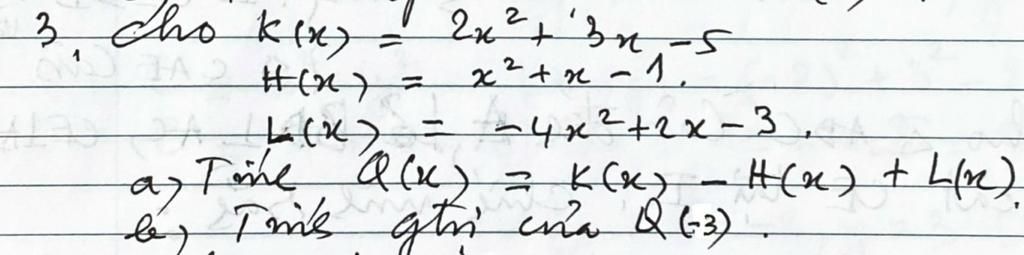 3, Cho K(x) = 2x² + 3x - 5
H(x) = x² + x - 1.
L(x) = -4x² + 2x - 3.
a, Tính Q(x) = K(x) - H(x) + L(x).
b, Tính gtri của Q(-3).